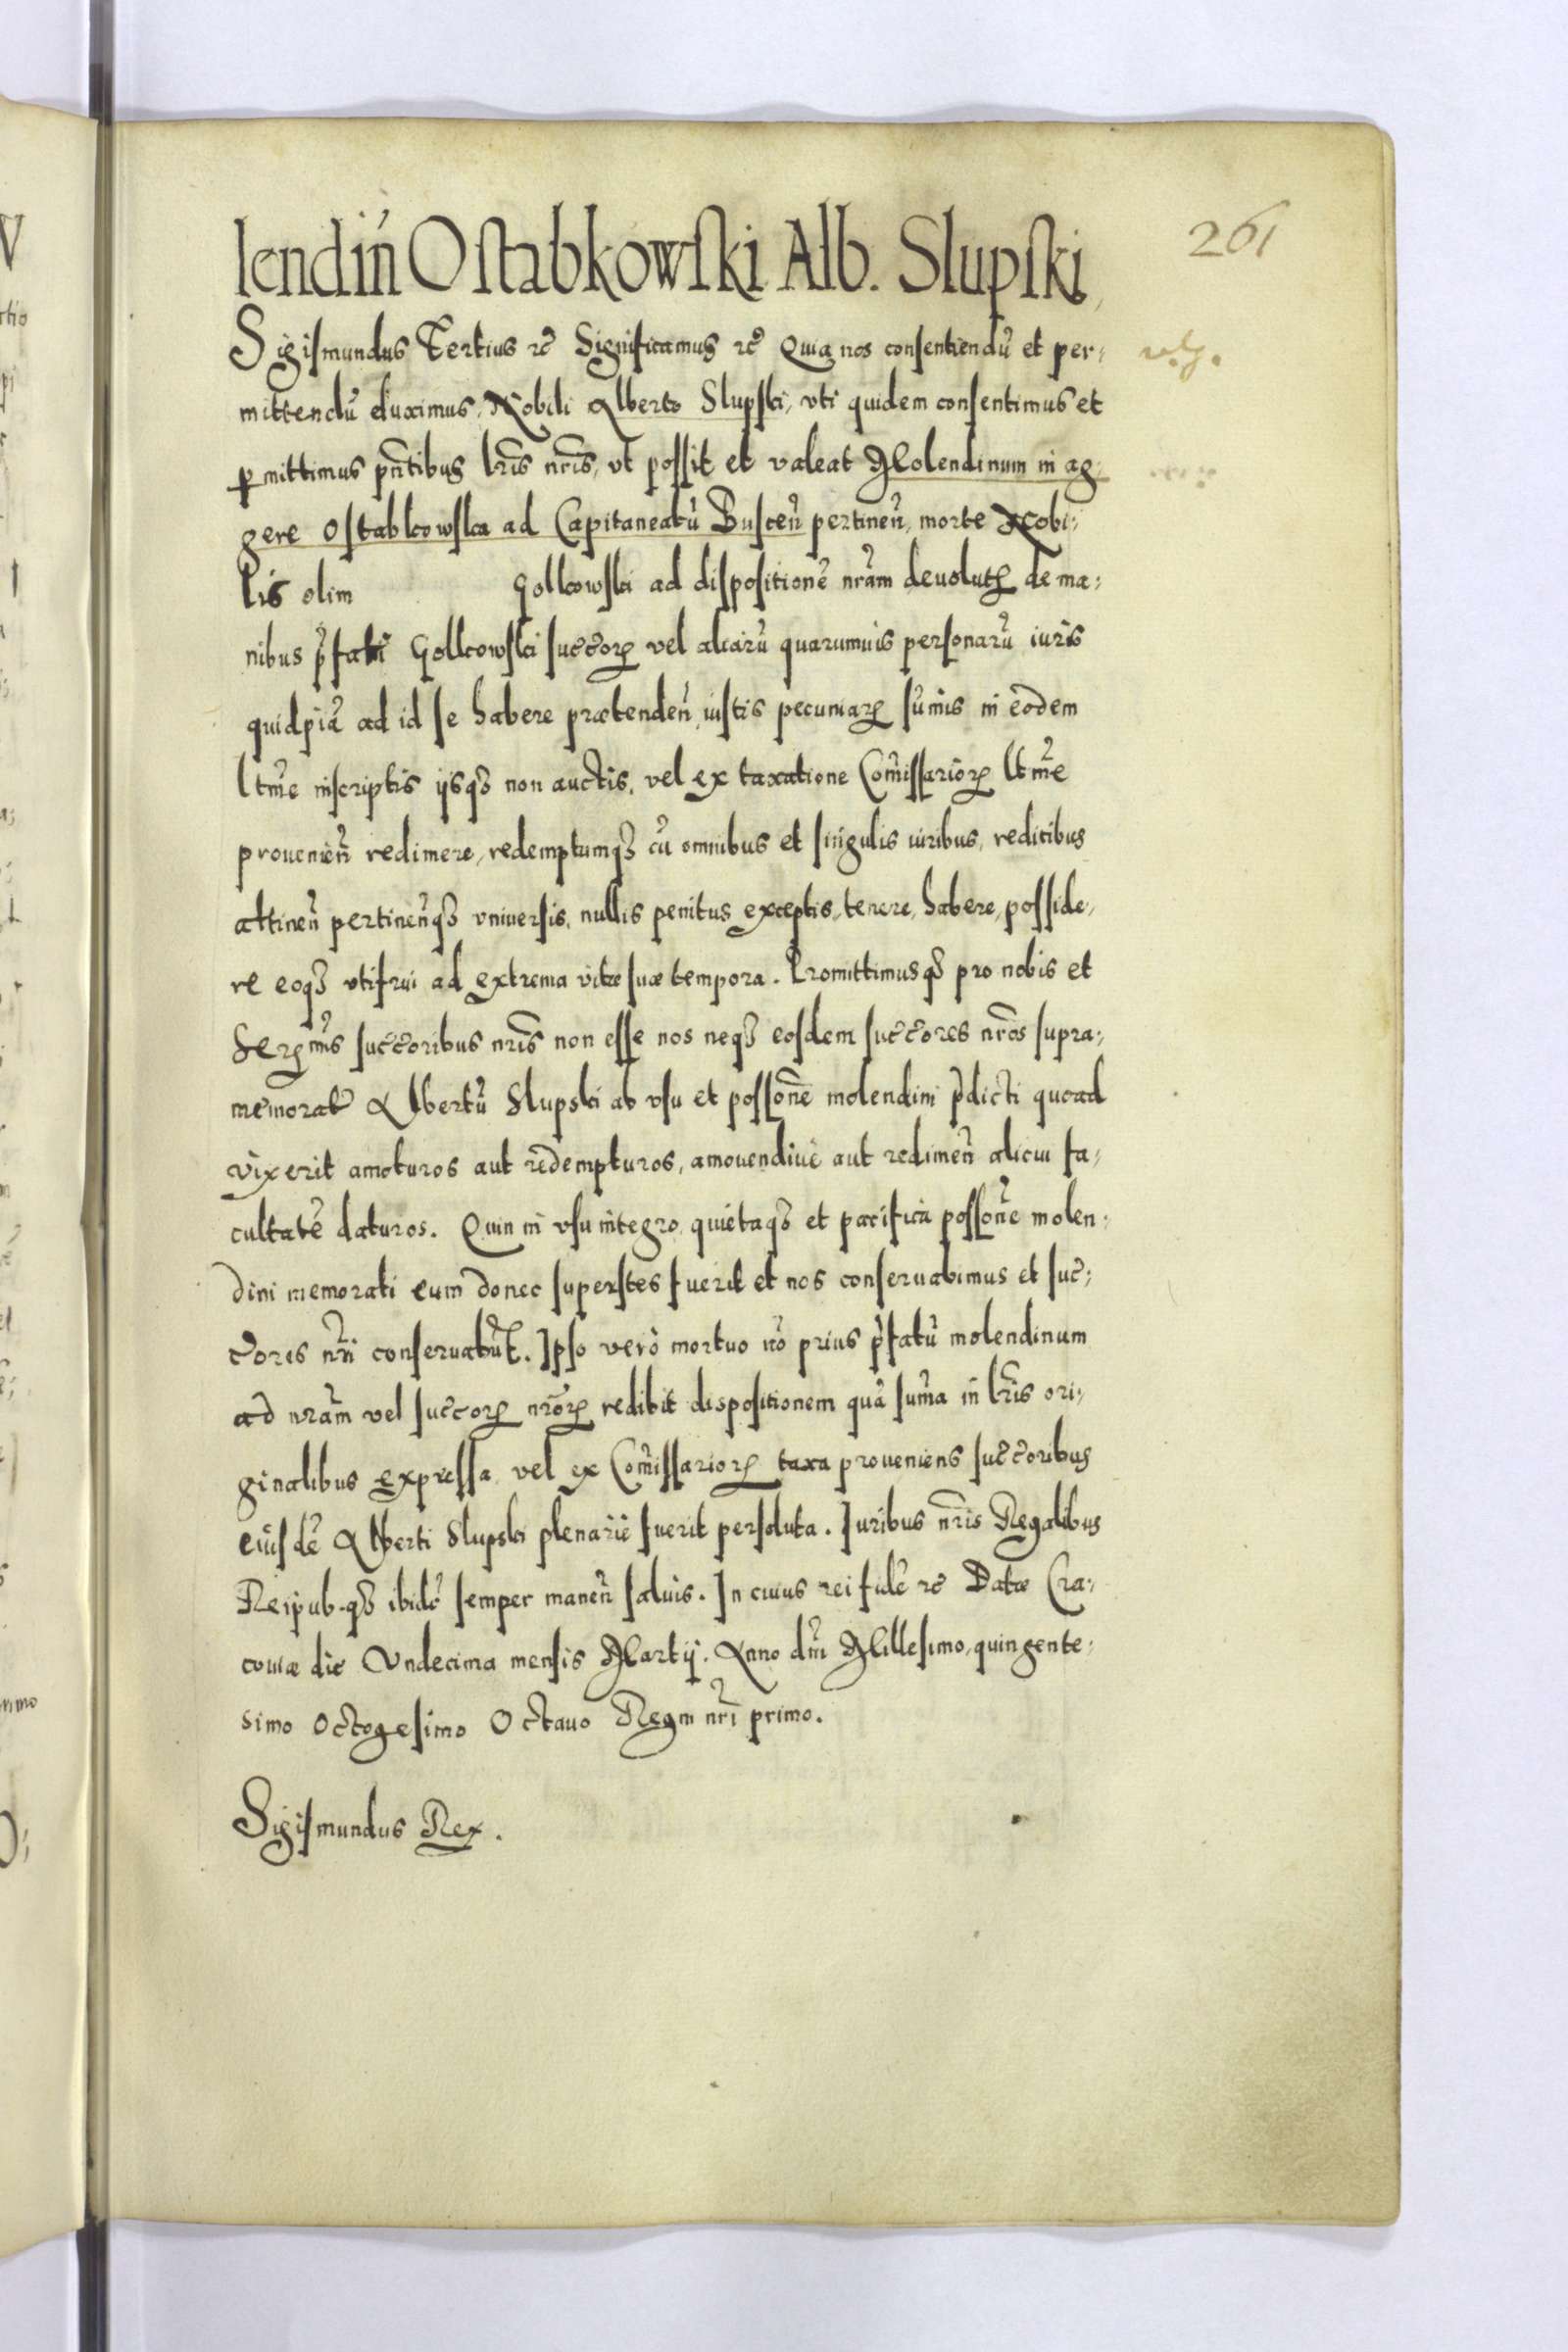 261
lendiń Ostabkowski Alb. Slupski,
Sigismundus Tertius rc̃ Significamus rc̃ Quia nos consentiendũ et per,
mittendũ duximus, Nobili Alberto Slupski, uti quidem consentimus et
ꝑmittimus pñtibus lr̃is nr̃is, ut possit et valeat Molendinum in ag,
gere Ostabkowska ad Capitaneatũ Buscen̄ pertinen̄, morte Nobi,
lis olim Golkowski ad dispositionẽ nr̃am devolutꝝ de ma,
nibus p̃fati Golkowski succ̃orꝝ vel aliarũ quarumvis personarũ iuris
quidpiã ad id se habere prætenden̄, iustis pecuniarꝝ sũmis in eodem
ltm̃e inscriptis iisqꝫ non auctis, vel ex taxatione Com̃issariorꝝ ltm̃e
provenien̄ redimere, redemptumqꝫ cũ omnibus et singulis iuribus, reditibus
attinen̄ pertinen̄qꝫ universis, nullis penitus exceptis, tenere, habere, posside,
re eoqꝫ utifrui ad extrema vitæ suæ tempora. Promittimusqꝫ pro nobis et
Serꝝm̃is succ̃oribus nr̃is non esse nos neqꝫ eosdem succ̃ores nr̃os supra,
memorat̃ Albertũ Slupski ab usu et poss̃one molendini p̃dicti quoad
vixerit amoturos aut redempturos, amovendive aut redimen̄ alicui fa,
cultatẽ daturos. Quin in usu integro, quietaqꝫ et pacifica poss̃one molen,
dini memorati eum donec superstes fuerit et nos conservabimus et suc̃,
c̃ores nr̃i conservabũt. Ipso verò mortuo nõ prius p̃fatũ molendinum
ad nr̃am vel succ̃orꝝ nr̃orꝝ redibit dispositionem quã sum̃a in lr̃is ori,
ginalibus expressa vel ex Com̃issariorꝝ taxa proveniens succ̃oribus
eiusdẽ Alberti Slupski plenarie fuerit persoluta. Iuribus nr̃is Regalibus
Reipub.qꝫ ibidẽ semper manen̄ salvis. In cuius rei fidẽ rc̃ Datæ Cra,
coviæ die Undecima mensis Martij. Anno dn̄i Millesimo, quingente,
simo Octogesimo Octavo Regni nr̃i primo.
Sigismundus Rex.